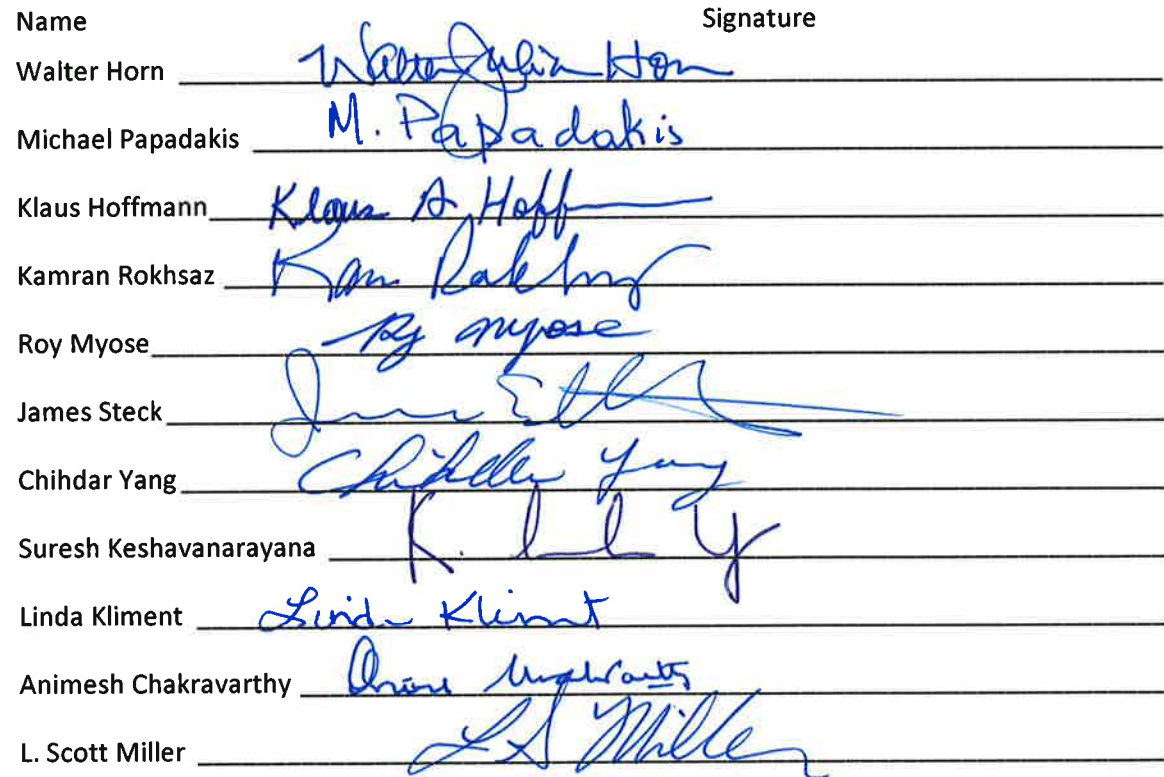 Name Signature
Walter Horn Walter Julian Horn
Michael Papadakis M. Papadakis
Klaus Hoffmann Klaus A Hoff
Kamran Rokhsaz Kam
Roy Myose Roy Myose
James Steck James E
Chihdar Yang Chihdar Yang
Suresh Keshavanarayana K.
Linda Kliment Linda Kliment
Animesh Chakravarthy
L. Scott Miller L S Miller